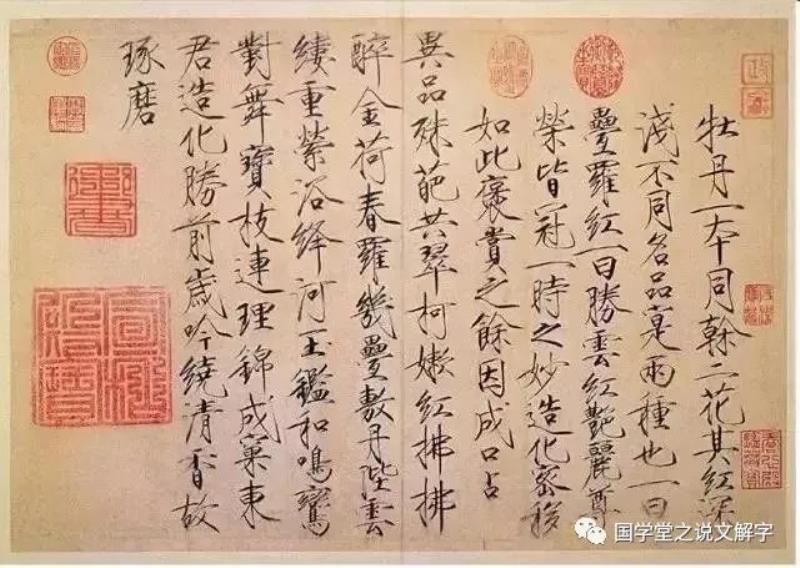 牡丹一本同榦二花其紅深
淺不同名品寔兩種也一曰
疊羅紅一曰勝雲紅艷麗尊
榮皆冠一時之妙造化密移
如此褒賞之餘因成口占
異品殊葩共翠柯嫩紅拂拂
醉金荷春羅幾疊敷丹陛雲
縷重縈浴絳河玉鑑和鳴鸞
對舞寶枝連理錦成窠東
君造化勝前歲吟繞清香故
琢磨
国学堂之说文解字